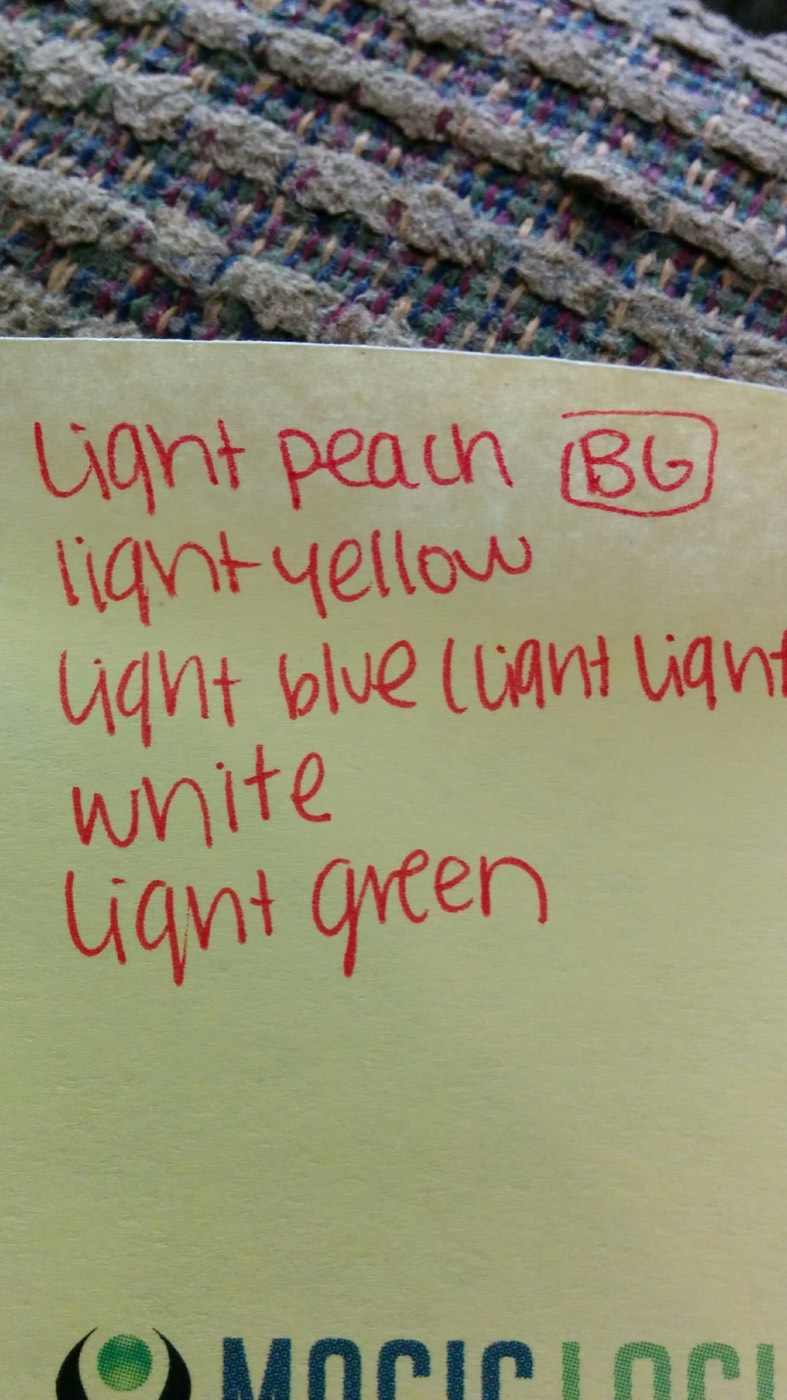 Light peach BG
light yellow
Light blue (Light Light
white
Light green